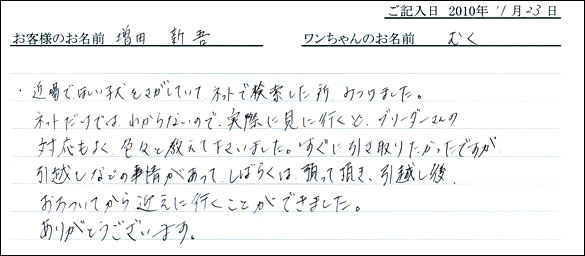 ご記入日 2010年 11月 23日
お客様のお名前 増田 新吾 ワンちゃんのお名前 むく
・近場でほしい子犬をさがしていて、ネットで検索した所 みつけました。
ネットだけでは わからないので、実際に見に行くと、ブリーダーさんの
対応もよく 色々と教えて下さいました。すぐに引き取りたかったですが
引越しなどの事情があって、しばらくは、預って頂き、引越し後、
おちついてから 迎えに行くことができました。
ありがとうございます。